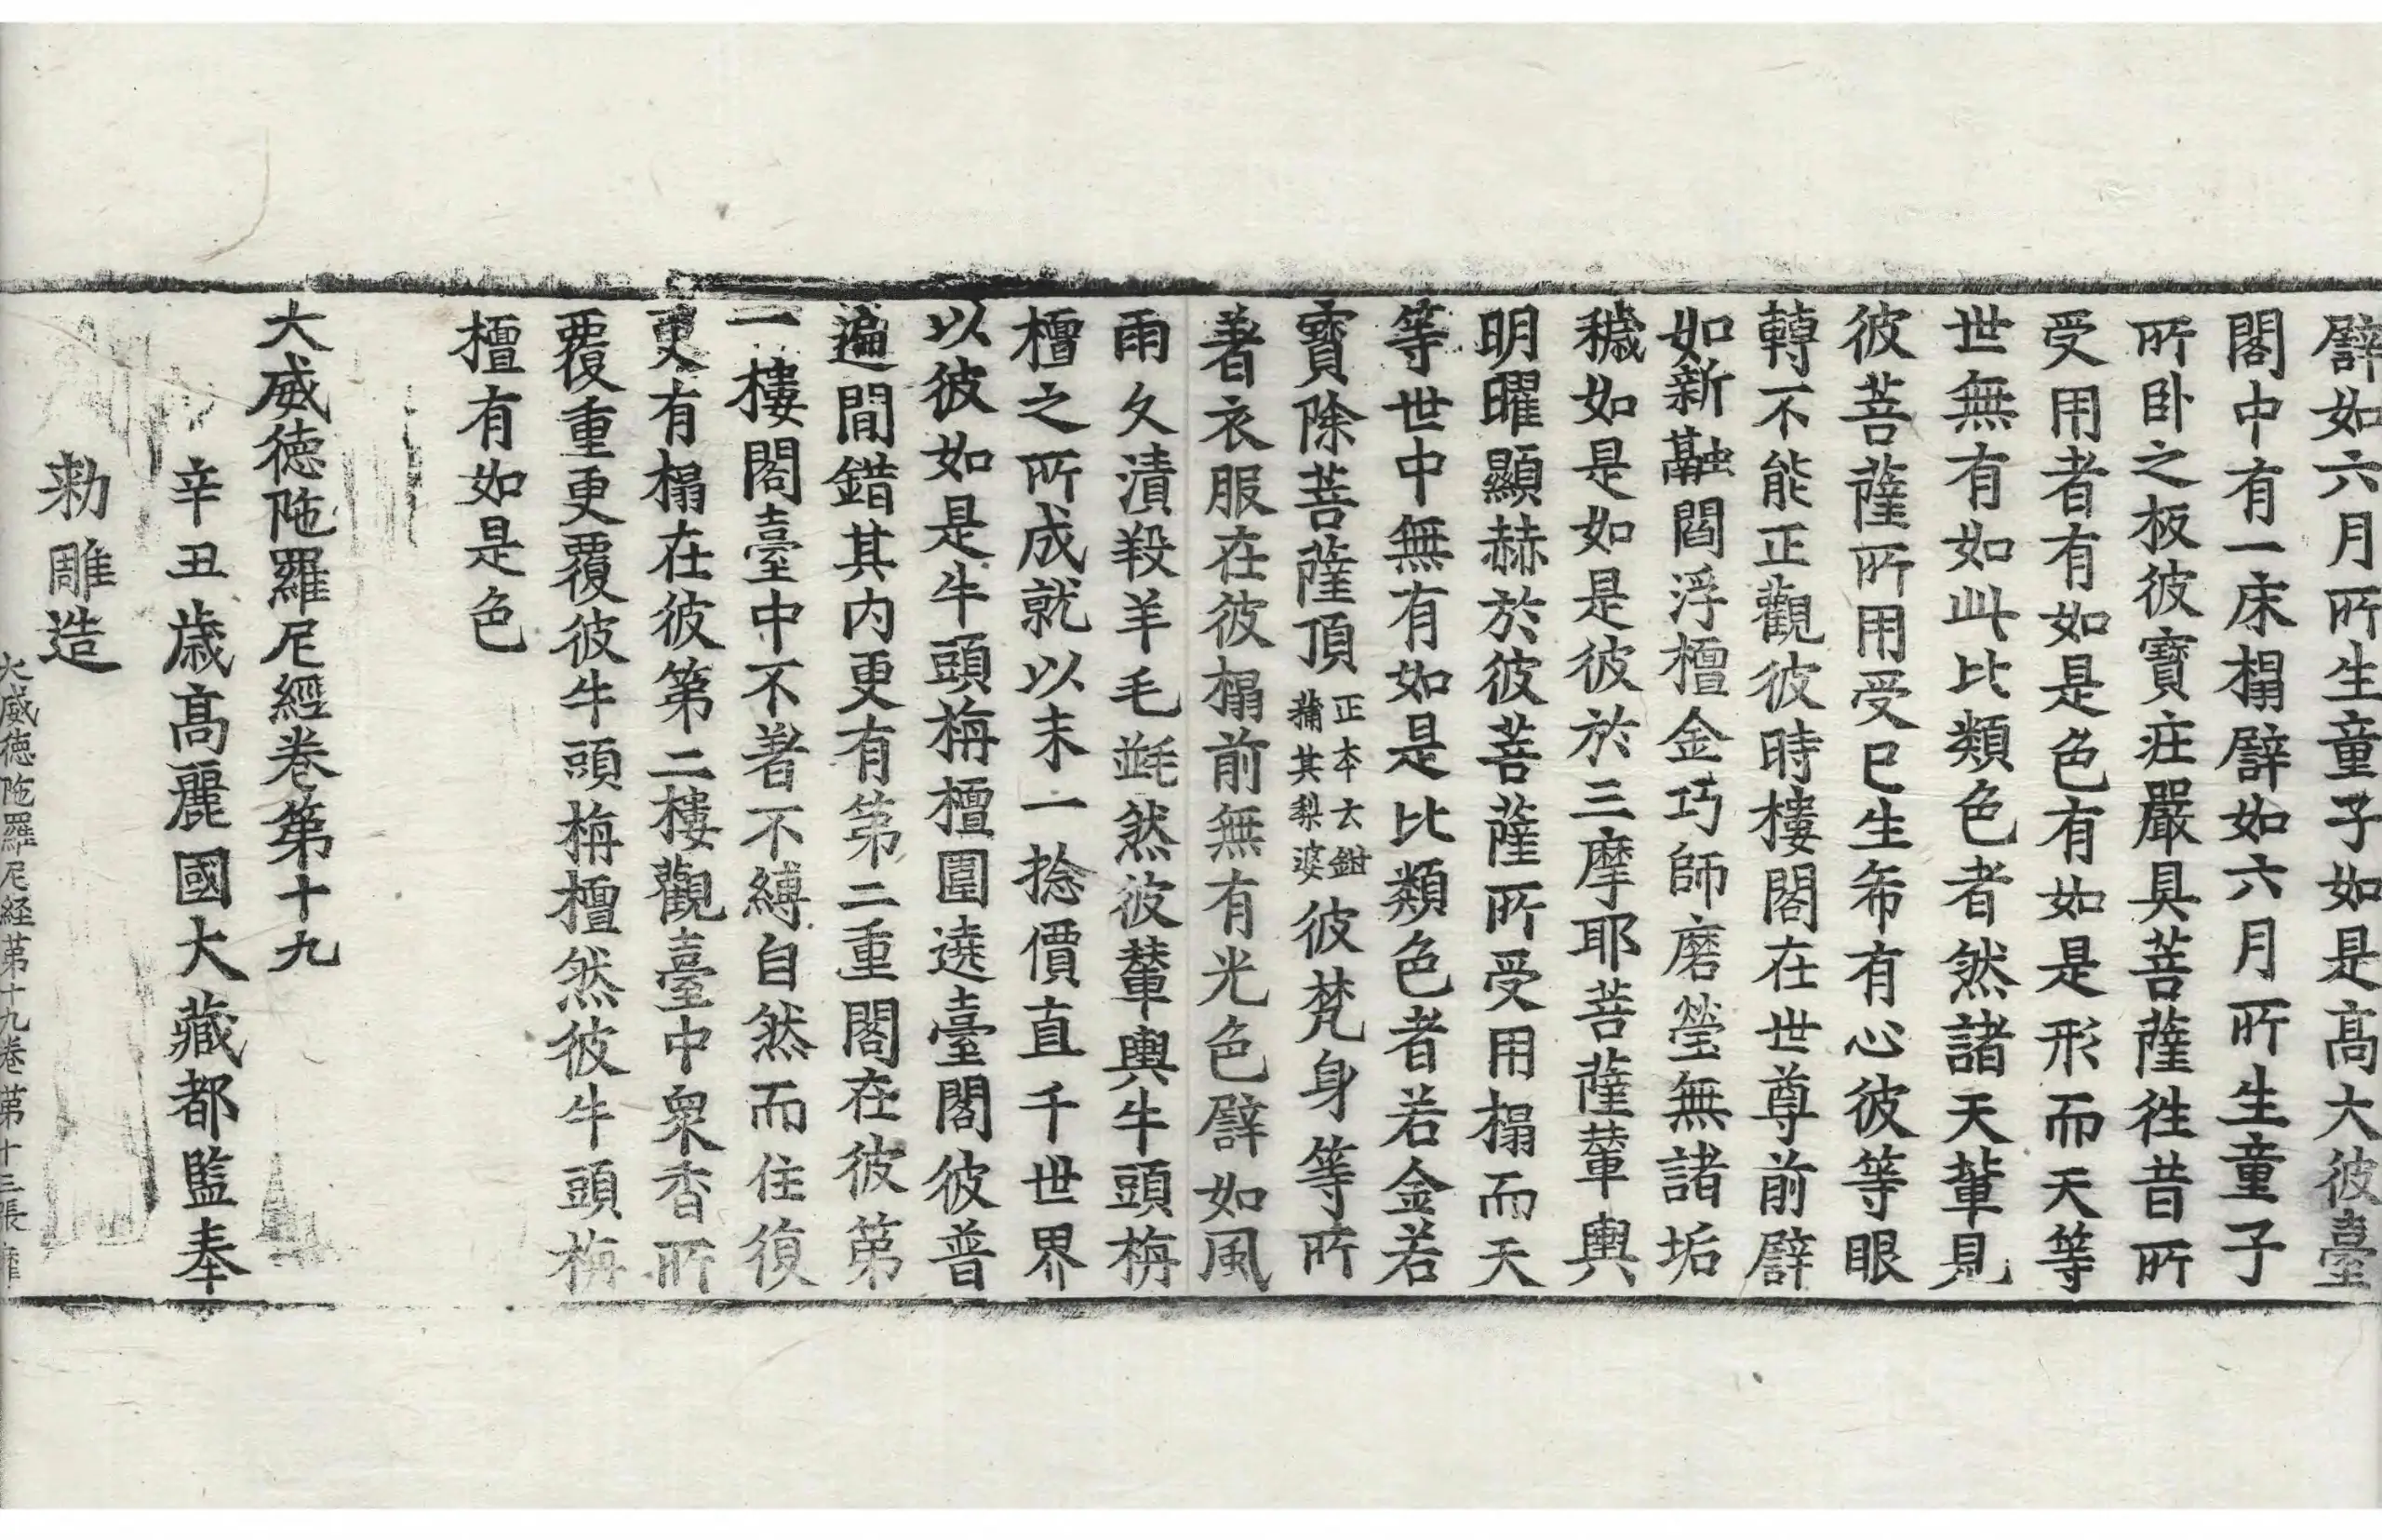 譬如六月所生童子如是高大彼臺
閣中有一床榻譬如六月所生童子
所卧之板彼寶莊嚴具菩薩往昔所
受用者有如是色有如是形而天等
世無有如此比類色者然諸天輩見
彼菩薩所用受已生希有心彼等眼
轉不能正觀彼時樓閣在世尊前譬
如新融閻浮檀金巧師磨瑩無諸垢
穢如是如是彼於三摩耶菩薩輦輿
明曜顯赫於彼菩薩所受用榻而天
等世中無有如是比類色者若金若
寶除菩薩頂正本云鉗蒱其梨婆彼梵身等所
著衣服在彼榻前無有光色譬如風
雨久漬羖羊毛毿然彼輦輿牛頭栴
檀之所成就以末一捻價直千世界
以彼如是牛頭栴檀圍遶臺閣彼普
遍間錯其內更有第二重閣在彼第
一樓閣臺中不著不縛自然而住復
更有榻在彼第二樓觀臺中衆香所
覆重更覆彼牛頭栴檀然彼牛頭栴
檀有如是色
大威德陁羅尼經卷第十九
辛丑歲高麗國大藏都監奉
勅雕造
大威德陁羅尼経第十九卷 第十三張 靡